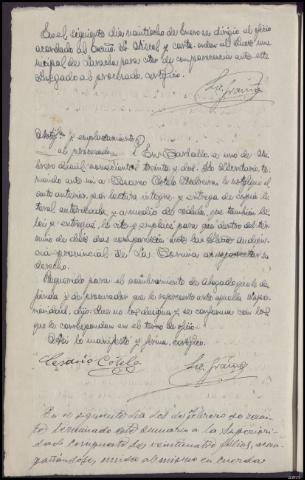 En el siguiente dia veintiocho de Enero se dirigió el oficio
acordado al Excmo. Sr. Fiscal y carta-orden al Juez mu-
nicipal de para citar de comparecencia ante este
Juzgado al procesado, certifico.
Notifón y emplazamiento
al procesado } En Carballo a uno de Fe-
brero de mil novecientos treinta y dos. Yo Secretario te-
niendo ante mi a Cesareo Cotelo le notifiqué el
auto anterior, por lectura integra y entrega de copia li-
teral autorizada, y a medio de cédula, que tambien le
leí y entregué, le cité y emplacé para que dentro del tér-
mino de diez dias comparezca ante la Audien-
cia provincial de La Coruña a su
derecho.
Requerido para el nombramiento de Abogado que le de-
fienda y de procurador que le represente ante aquella Supe-
rioridad, dijo: que no los designa y se conforma con los
que le correspondan en el turno de oficio.
Así lo manifestó y firma, certifico.
Cesareo Cotelo
En el siguiente dia dos de febrero se remi-
tió terminado este sumario a la Superiori-
dad compuesto de veintinueve folios, acom-
pañándose, unida al mismo en cuerda